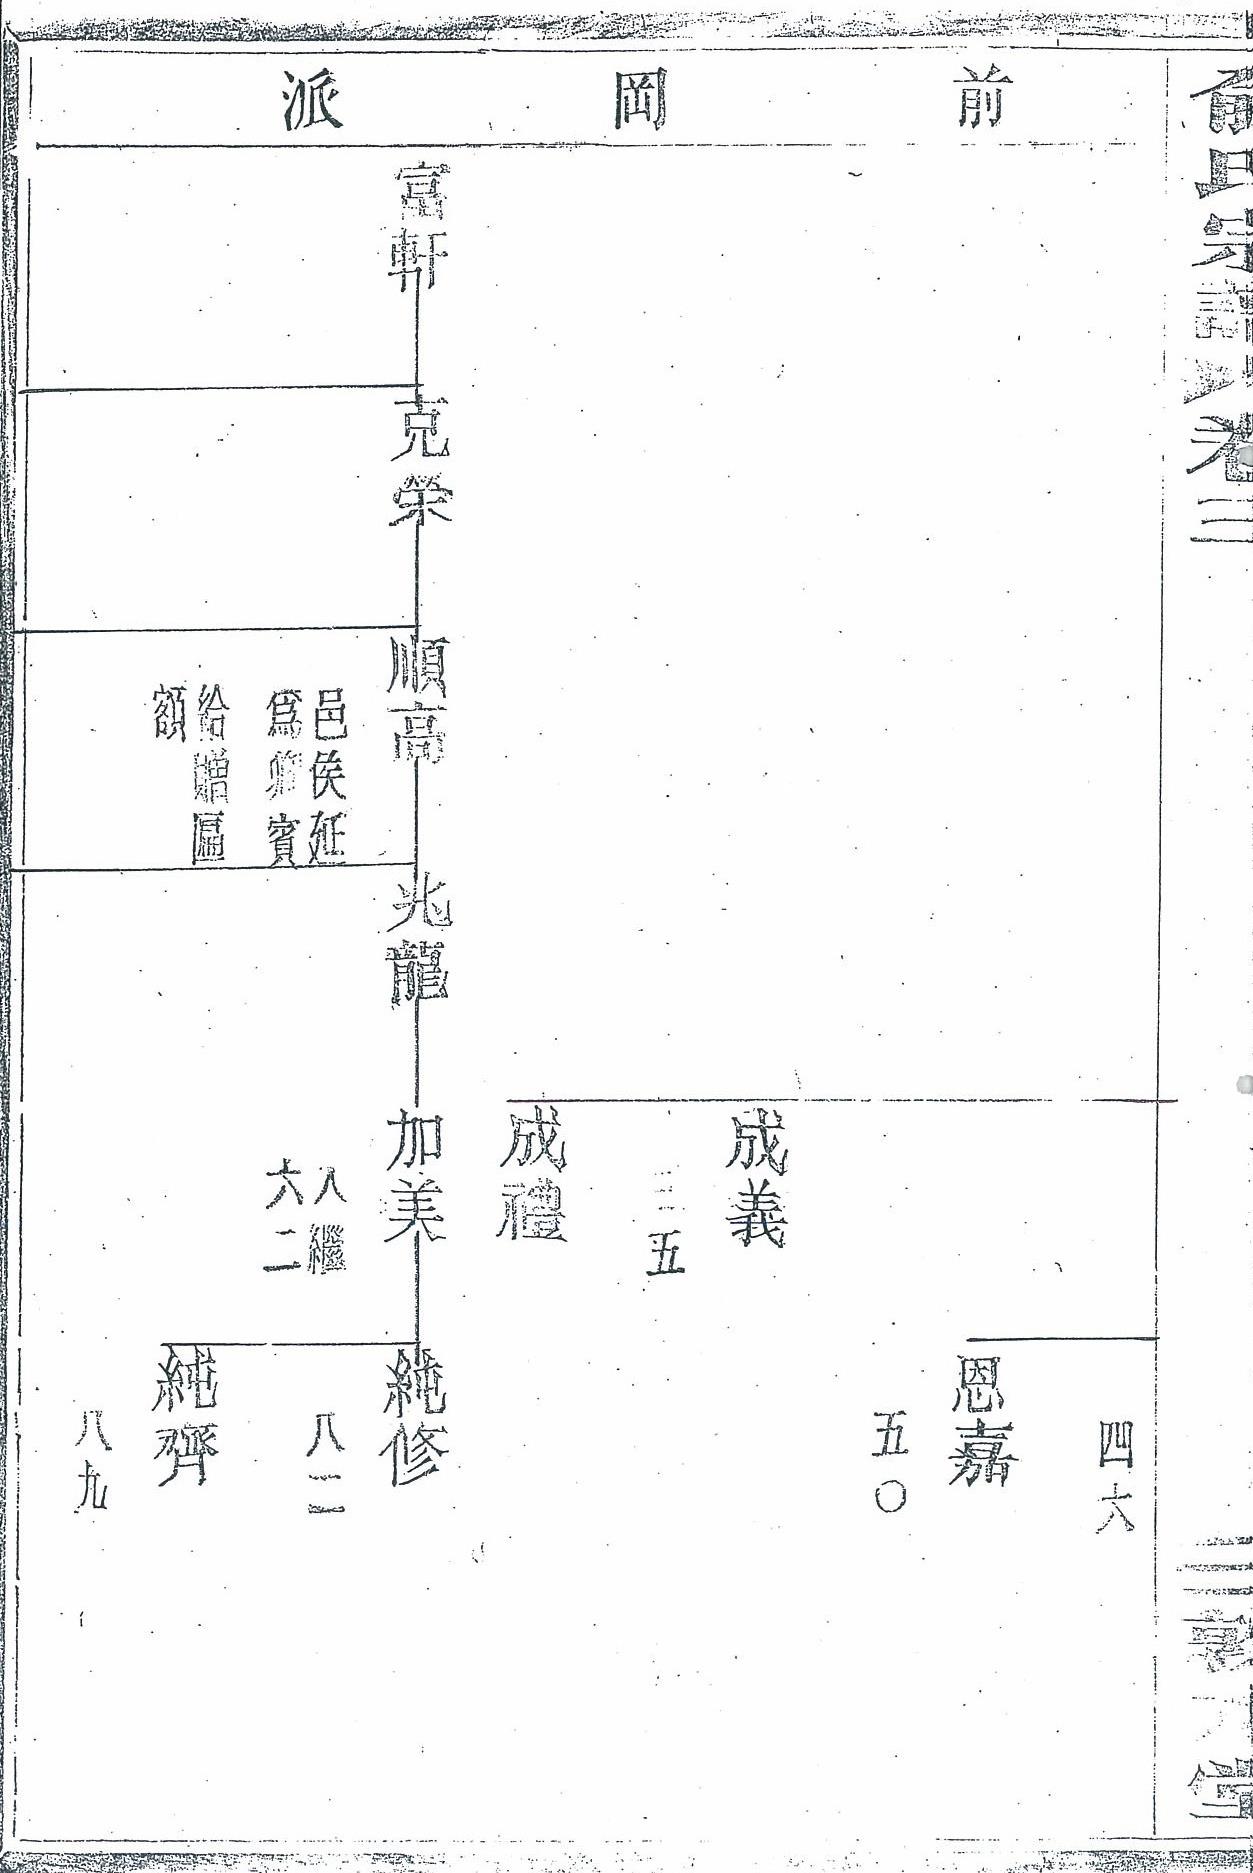 俞氏宗譜 卷三
堂
前岡派
四六
恩嘉
五〇
成義
五
成禮
富軒
克榮
順高
邑侯延
爲鄉賓
給贈匾
額
兆龍
加美
入繼
六二
純修
八二
純齊
八九